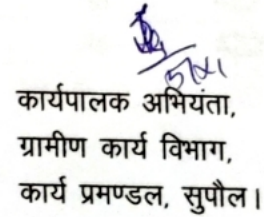 कार्यपालक अभियंता,
ग्रामीण कार्य विभाग,
कार्य प्रमण्डल, सुपौल।